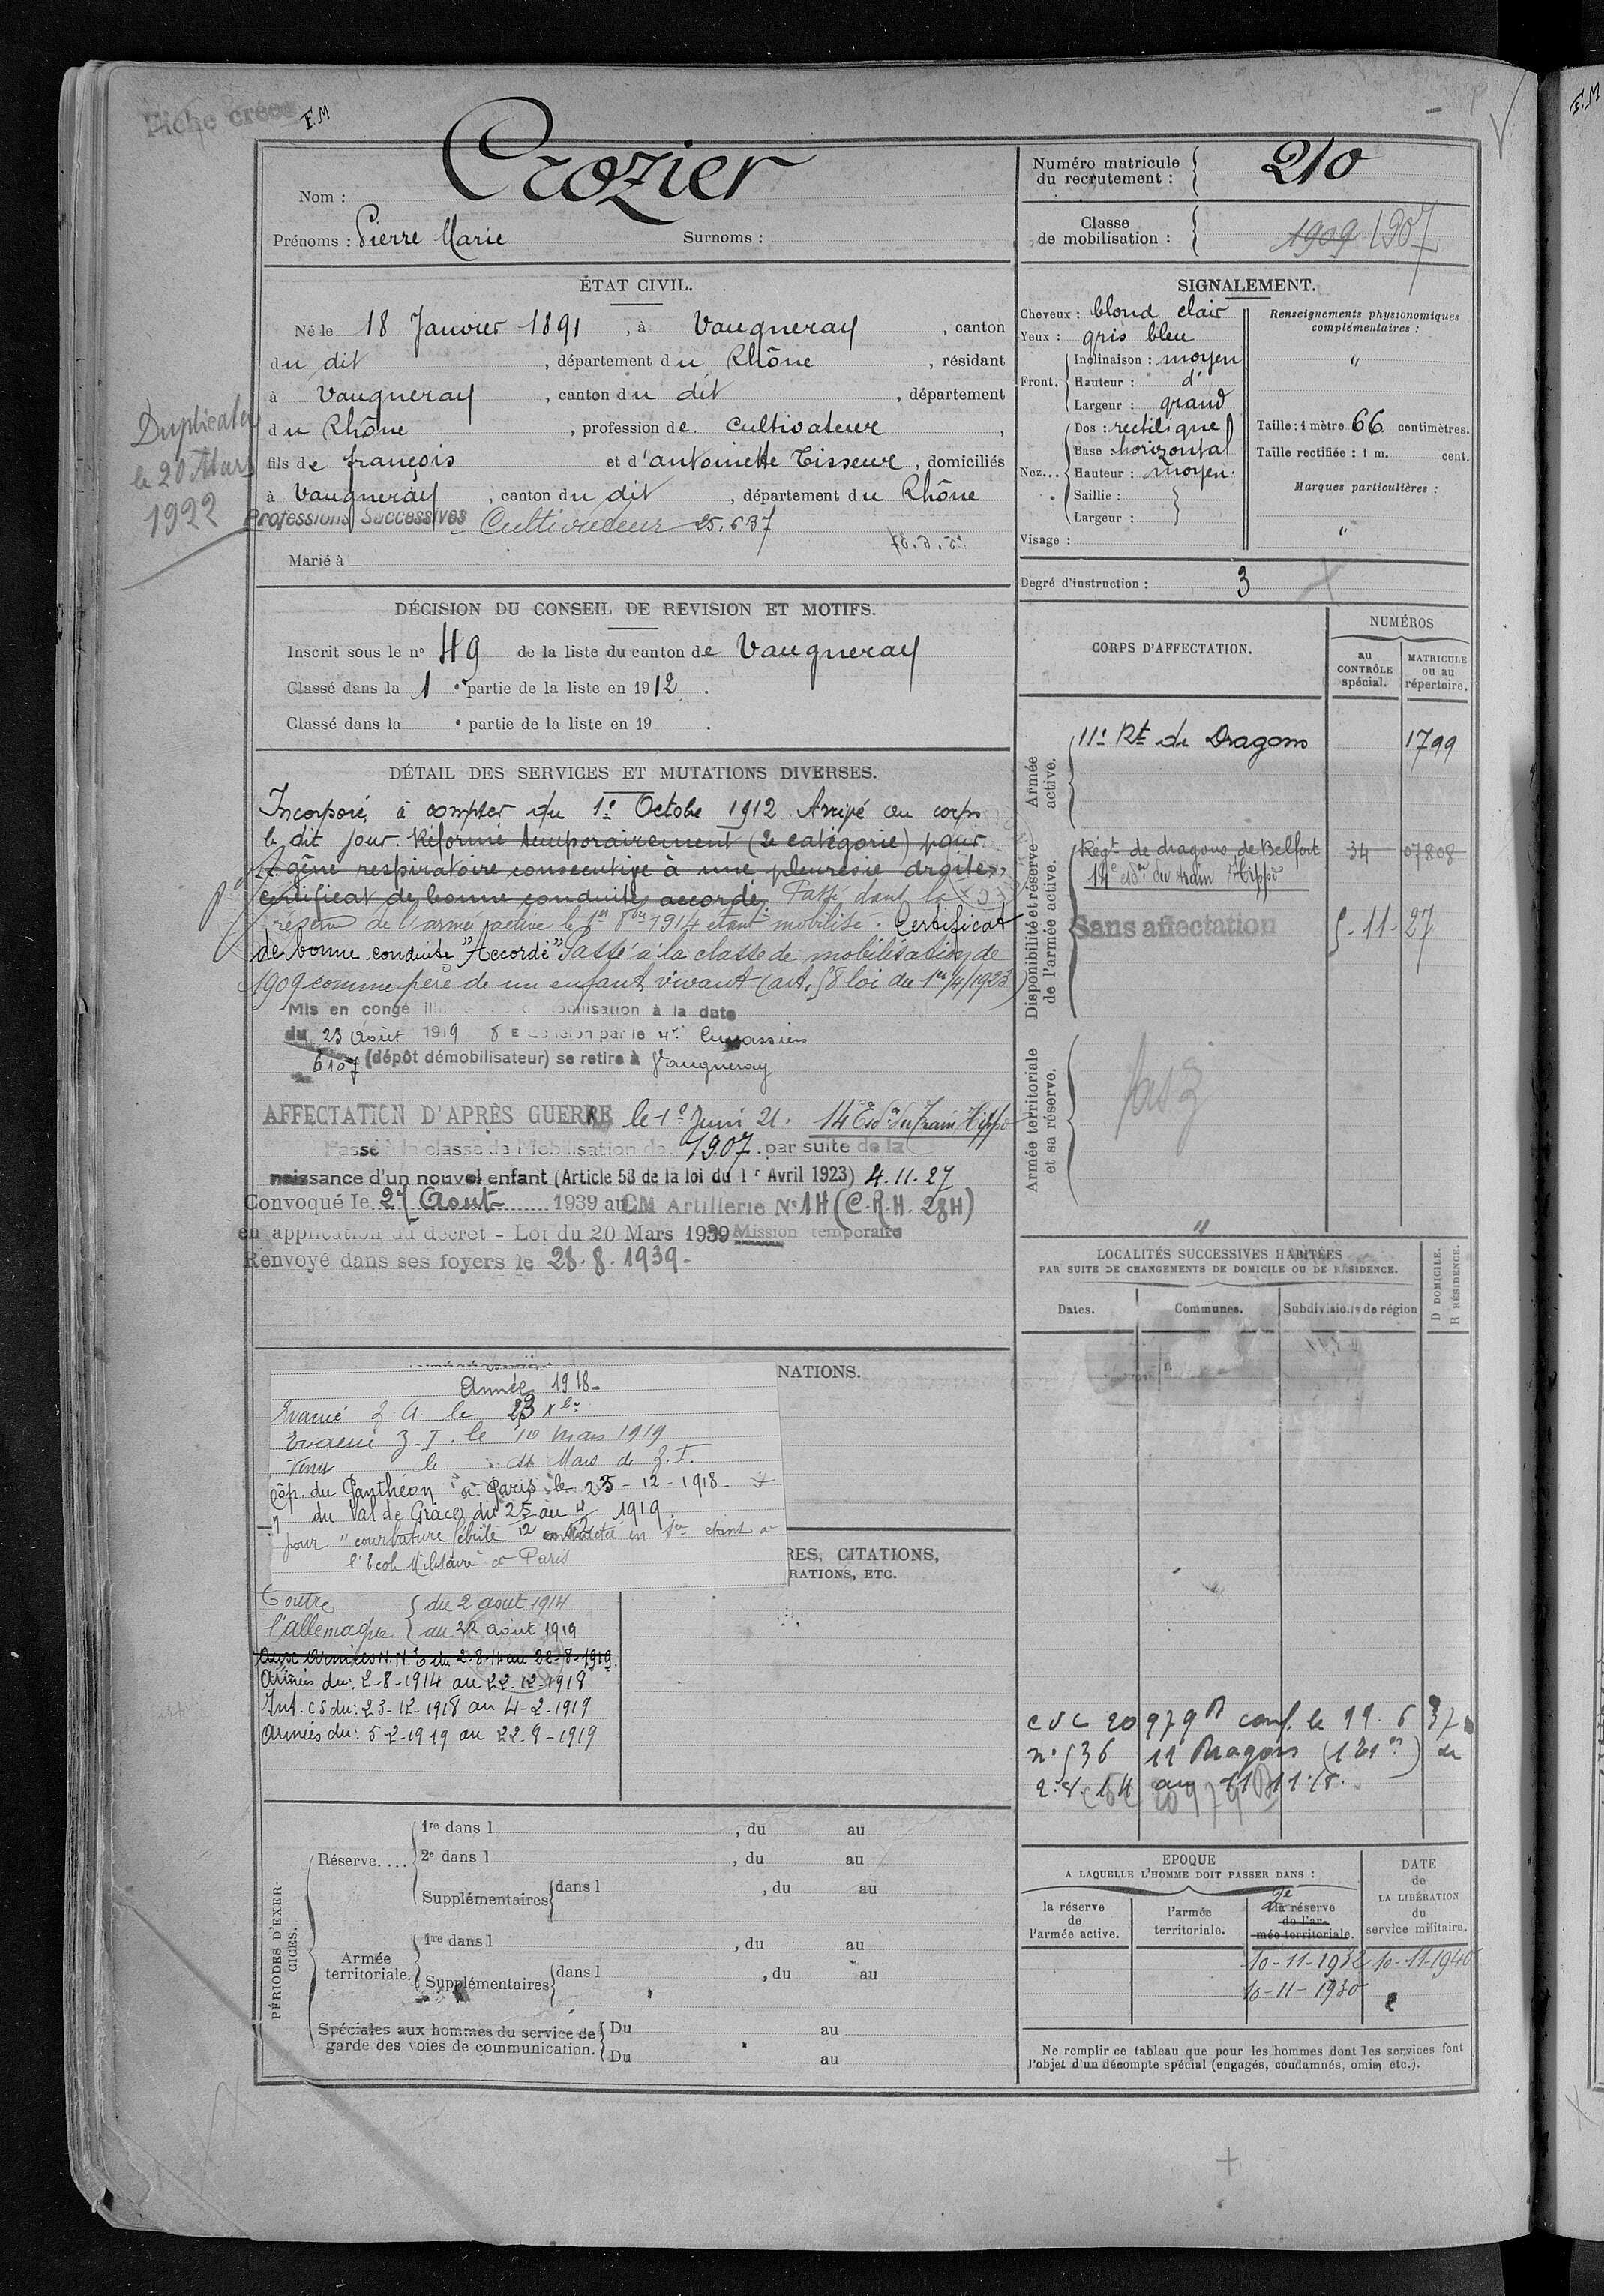 Fiche créée
F.M
Nom : Crozier
Prénoms : Pierre Marie Surnoms :
Numéro matricule
du recrutement : 210
Classe
de mobilisation : 1909 1907
ÉTAT CIVIL.
Né le 18 Janvier 1891, à Vaugneray, canton
du dit, département du Rhône, résidant
à Vaugneray, canton du dit, département
du Rhône, profession de Cultivateur,
fils de françois et d'antoinette Tisseur, domiciliés
à Vaugneray, canton du dit, département du Rhône
Professions Successives Cultivateur 25.6.37
Marié à
Duplicata
le 20 Mars
1922
SIGNALEMENT.
Cheveux : blond clair
Yeux : gris bleu
Front. Inclinaison : moyen
Hauteur : d°
Largeur : grand
Nez... Dos : rectiligne
Base : horizontal
Hauteur : moyen
Saillie :
Largeur :
Visage :
Renseignements physionomiques
complémentaires :
"
Taille : 1 mètre 66 centimètres.
Taille rectifiée : 1 m. cent.
Marques particulières :
"
Degré d'instruction : 3
DÉCISION DU CONSEIL DE REVISION ET MOTIFS.
Inscrit sous le n° 49 de la liste du canton de Vaugneray
Classé dans la 1e partie de la liste en 1912.
Classé dans la e partie de la liste en 19 .
CORPS D'AFFECTATION.
NUMÉROS
au
CONTRÔLE
spécial.
MATRICULE
ou au
répertoire.
Armée
active.
11e Rt de Dragons 1799
Disponibilité et réserve
de l'armée active.
Régt de dragons de Belfort 34 07808
14e esdon du train Hippo
Sans affectation 5-11-27
Armée territoriale
et sa réserve.
"
DÉTAIL DES SERVICES ET MUTATIONS DIVERSES.
Incorporé à compter du 1er Octobre 1912. Arrivé au corps
le dit jour. Réformé temporairement (2e catégorie) pour
gêne respiratoire consecutive à une pleuresie droite,
certificat de bonne conduite accordé. Passé dans la
réserve de l'armée active le 1er 8bre 1914 étant mobilisé. Certificat
de bonne conduite "Accordé" Passé à la classe de mobilisation de
1909 comme père de un enfant vivant (art. 58 loi du 1er/4/1923)
Mis en congé à la date
du 23 Août 1919 8E echelon par le 4e Cuirassiers
6107 (dépôt démobilisateur) se retire à Vaugneray
AFFECTATION D'APRÈS GUERRE le 1er Juin 21. 14e Esdon du Train Hippo
Passé à la classe de Mobilisation de 1907. par suite de la
naissance d'un nouvel enfant (Article 58 de la loi du 1r Avril 1923) 4.11.27
Convoqué le 27 Aout 1939 au CM Artillerie N°14 (C.R.H. 284)
en application du décret - Loi du 20 Mars 1939 Mission temporaire
Renvoyé dans ses foyers le 28.8.1939-
LOCALITÉS SUCCESSIVES HABITÉES
PAR SUITE DE CHANGEMENTS DE DOMICILE OU DE RÉSIDENCE.
Dates. Communes. Subdivisions de région
D DOMICILE.
R RÉSIDENCE.
NATIONS.
Année 1918-
Evacué Z.A. le 23 Xbre
Evacué Z.I. le 10 Mars 1919
Venu le Mars de Z.I.
Hôp. du Panthéon à Paris le 23-12-1918-
du Val de Grâce du 25 au 1919
pour "courbature fébrile" contractée en étant à
l'Ecole Militaire à Paris
RES, CITATIONS,
RATIONS, ETC.
Contre
l'allemagne
du 2 août 1914
au 22 août 1919
Aux Armées N.N.E du 2-8-14 au 22-8-1919.
Armées du : 2-8-1914 au 22.12.1918
Int. CS du : 23-12-1918 au 4-2-1919
Armées du : 5-2-1919 au 22-8-1919
C V C 20979 B conf. le 11.6 37
n° 536 11 Dragons de
2.8.14 au 11.11.18.
PÉRIODES D'EXER-
CICES.
Réserve.... 1re dans l , du au
2e dans l , du au
Supplémentaires dans l , du au
Armée
territoriale.
1re dans l , du au
Supplémentaires dans l , du au
Spéciales aux hommes du service de
garde des voies de communication.
Du au
Du au
EPOQUE
A LAQUELLE L'HOMME DOIT PASSER DANS :
DATE
de
LA LIBÉRATION
du
service militaire.
la réserve
de
l'armée active.
l'armée
territoriale.
2e
la réserve
de l'ar-
mée territoriale.
10-11-1932 10-11-1940
10-11-1930
Ne remplir ce tableau que pour les hommes dont les services font
l'objet d'un décompte spécial (engagés, condamnés, omis, etc.).
F.M